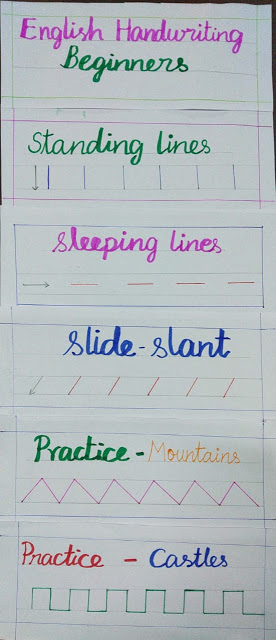 English Handwriting
Beginners
Standing lines
Sleeping lines
Slide-slant
Practice - Mountains
Practice - Castles